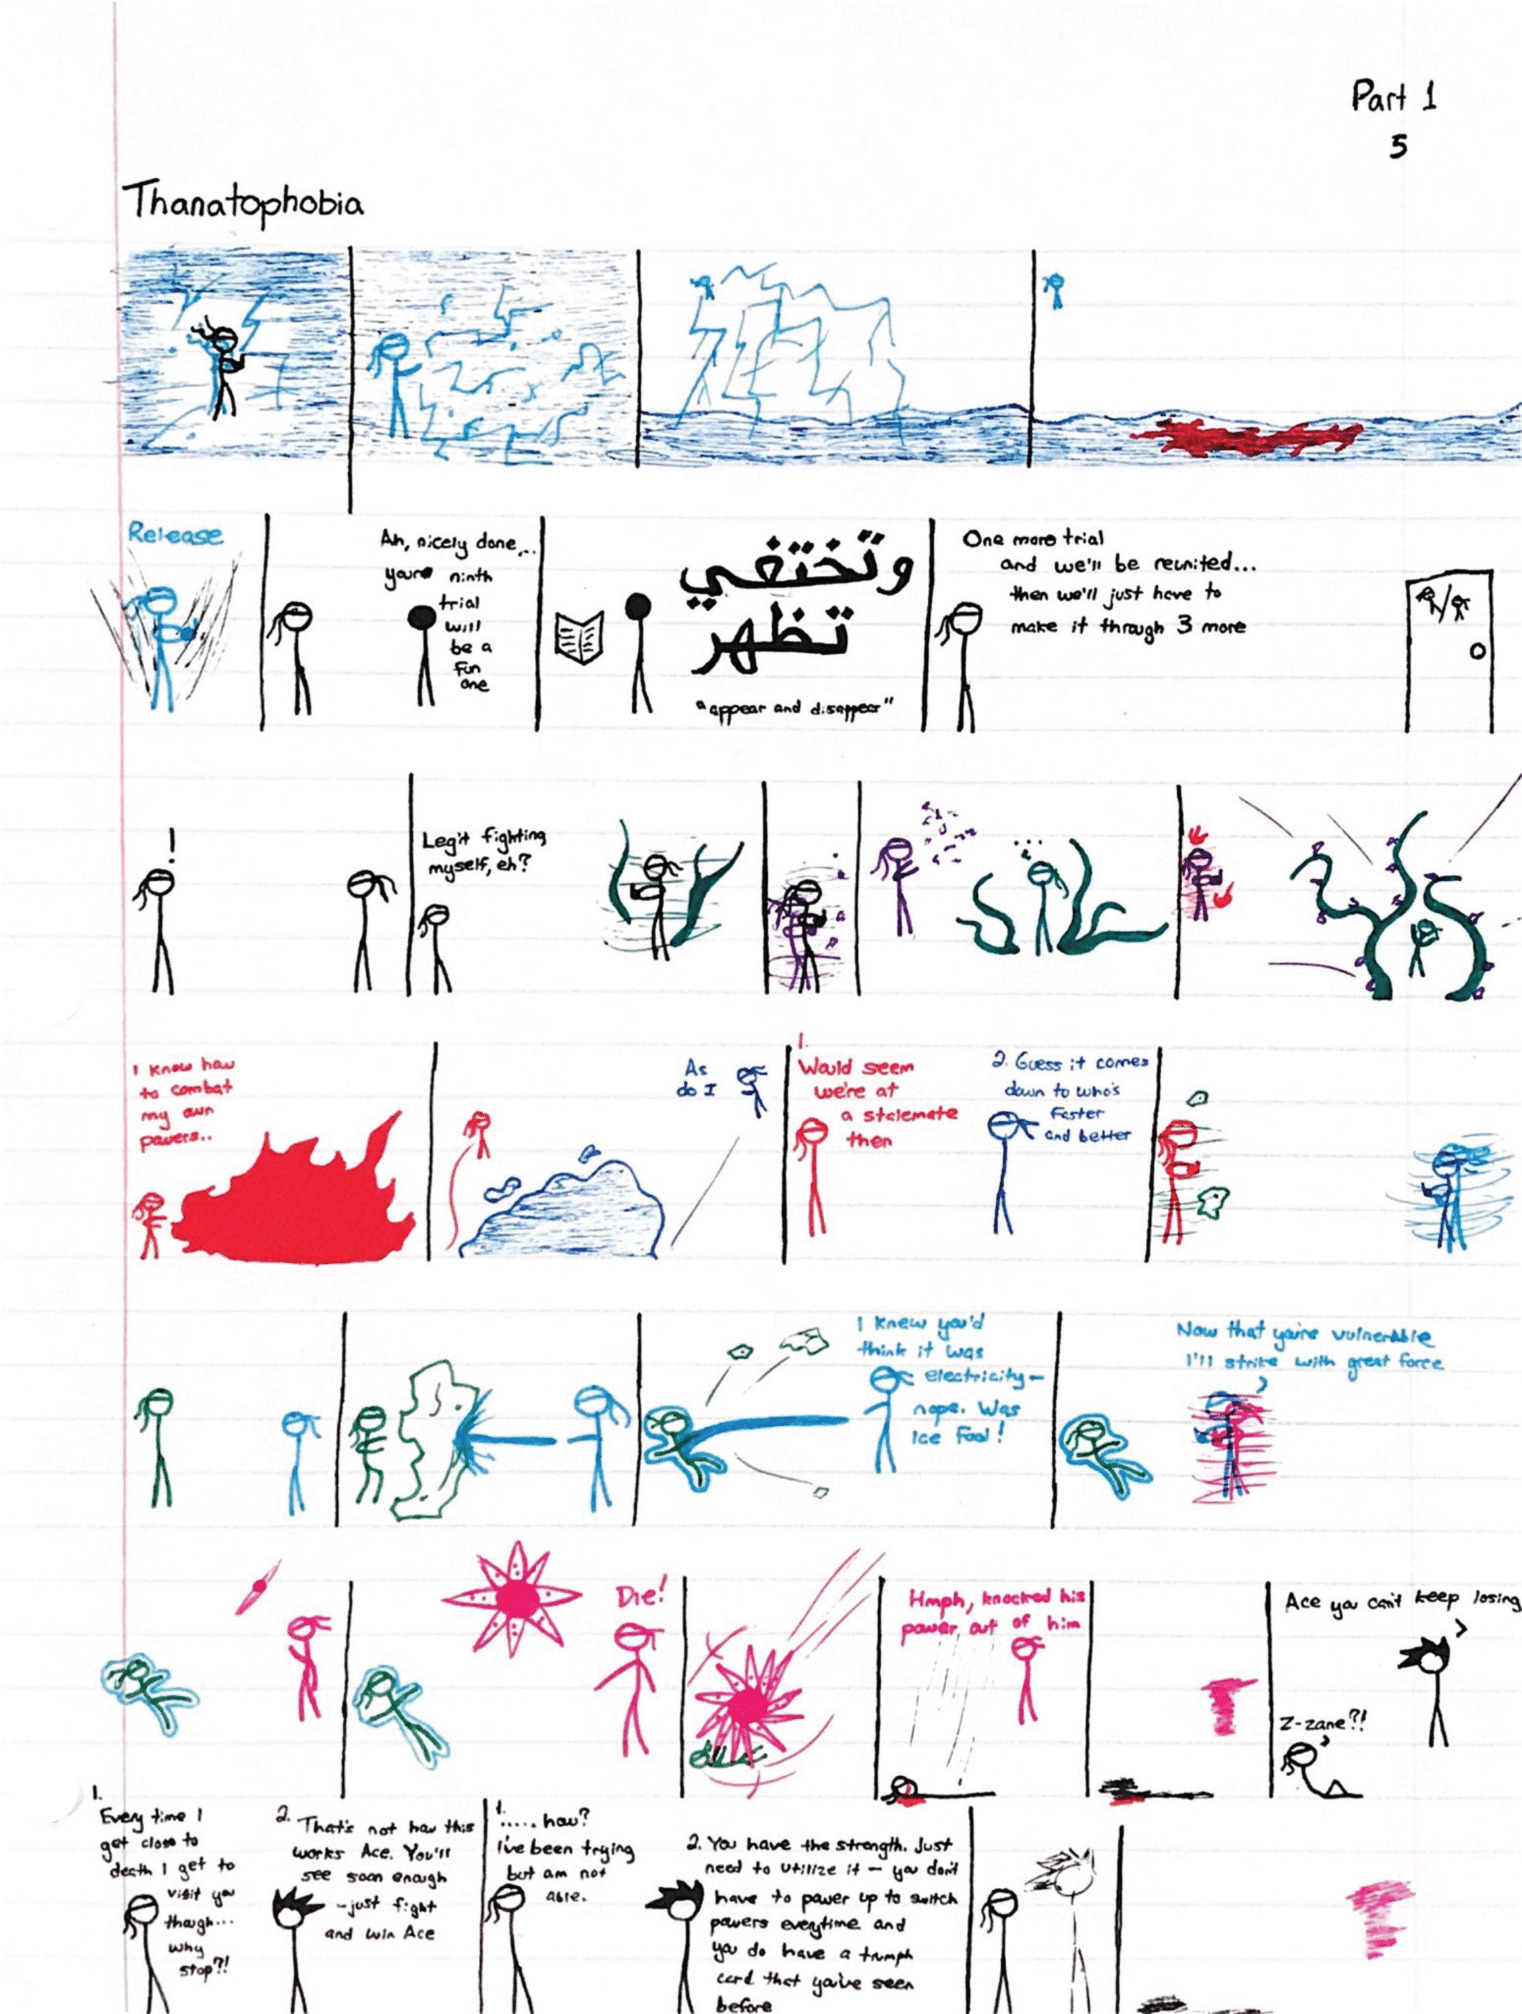 Part 1
5
Thanatophobia
Release
Ah, nicely done...
youre ninth
trial
will
be a
fun
one
وتختفي
تظهر
"appear and disappear"
One more trial
and we'll be reunited...
then we'll just have to
make it through 3 more
!
Legit fighting
myself, eh?
...
I know how
to combat
my own
powers..
As
do I
1.
Would seem
we're at
a stalemate
then
2. Guess it comes
down to who's
faster
and better
I knew you'd
think it was
electricity-
nope. Was
Ice Fool!
Now that you're vulnerable
I'll strike with great force
Die!
Hmph, knocked his
power out of him
Ace you can't keep losing
Z-zane?!
1.
Every time I
get close to
death I get to
visit you
though...
why
stop?!
2. That's not how this
works Ace. You'll
see soon enough
-just fight
and win Ace
1.
..... how?
I've been trying
but am not
able.
2. You have the strength. Just
need to utilize it - you don't
have to power up to switch
powers everytime and
you do have a trump
card that you've seen
before